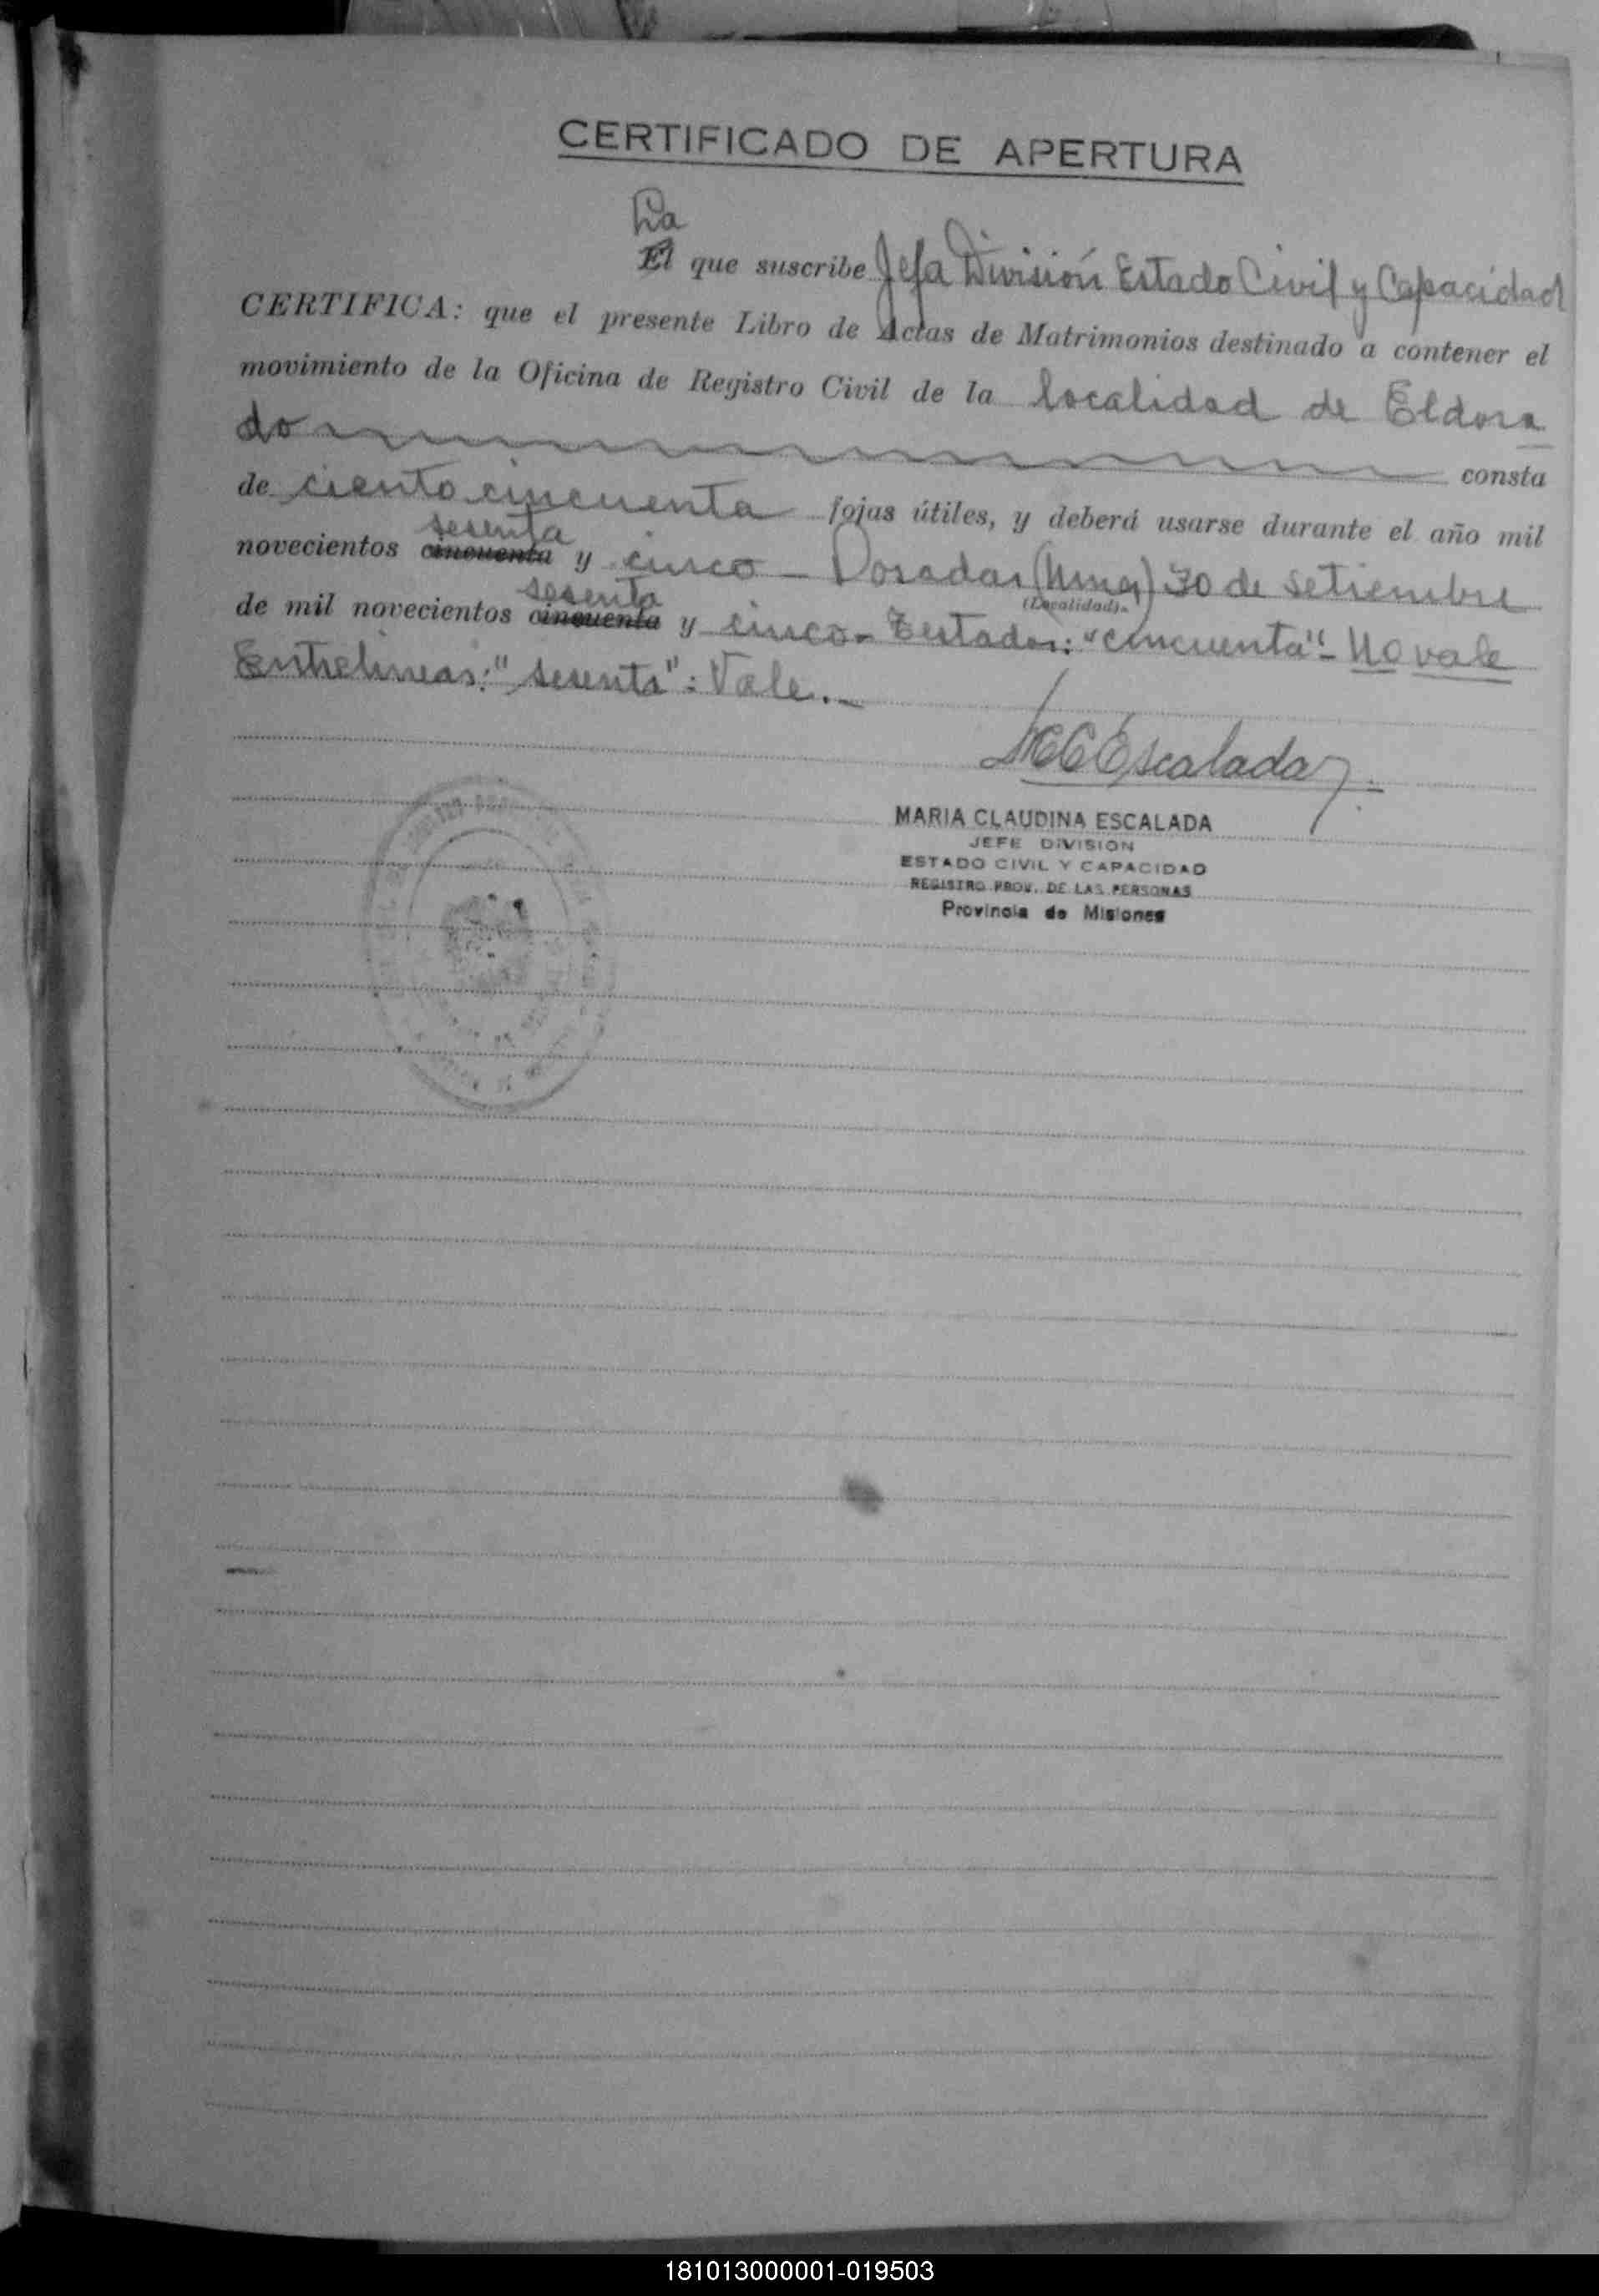 CERTIFICADO DE APERTURA
La
El que suscribe Jefa División Estado Civil y Capacidad
CERTIFICA: que el presente Libro de Actas de Matrimonios destinado a contener el
movimiento de la Oficina de Registro Civil de la localidad de Eldora
do consta
de ciento cincuenta fojas útiles, y deberá usarse durante el año mil
sesenta
novecientos cincuenta y cinco - Posadas (Mnes) 30 de setiembre
(Localidad)
sesenta
de mil novecientos cincuenta y cinco - Testados: "cincuenta" - No vale
Entrelineas: "sesenta": Vale. -
MCEscalada
MARIA CLAUDINA ESCALADA
JEFE DIVISION
ESTADO CIVIL Y CAPACIDAD
REGISTRO PROV. DE LAS PERSONAS
Provincia de Misiones
181013000001-019503